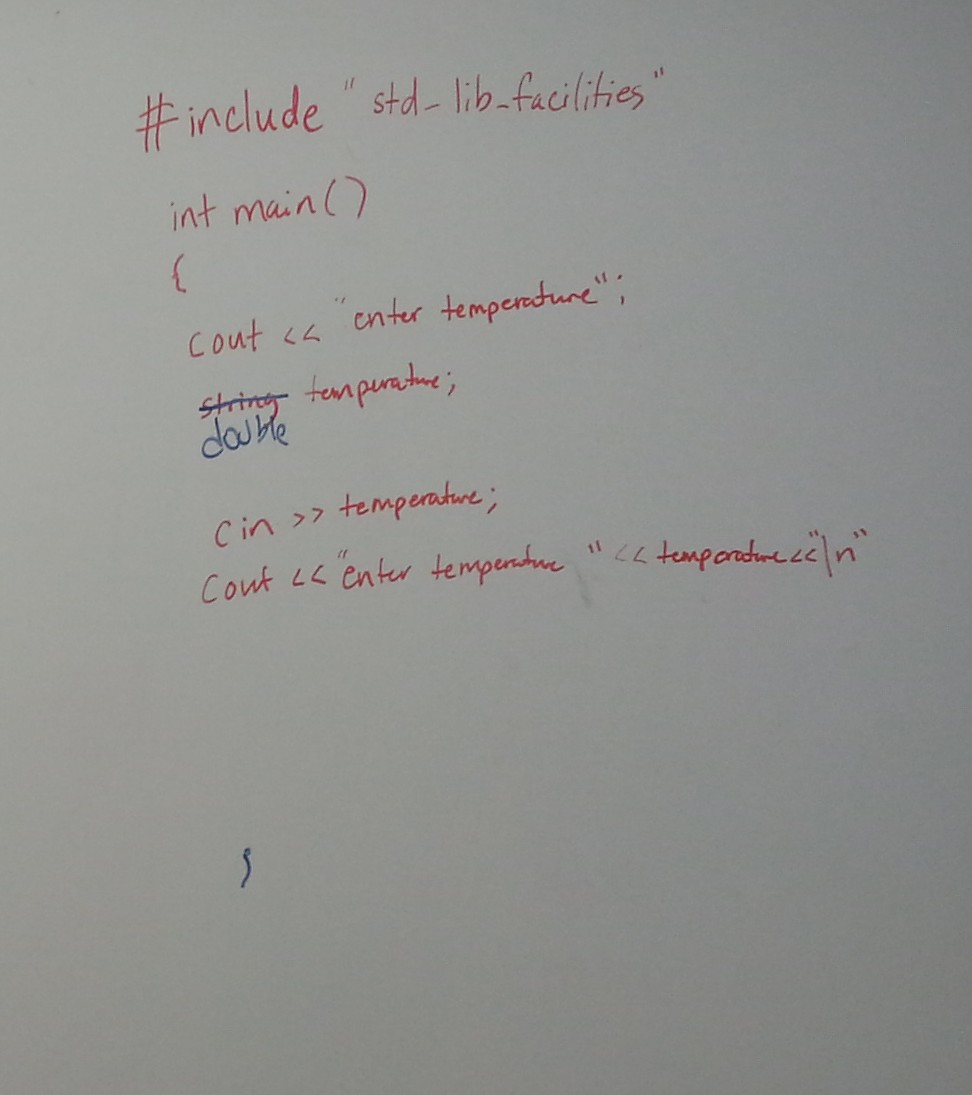 #include "std_lib_facilities"
int main()
{
cout << "enter temperature";
string tempurature;
double
cin >> temperature;
cout << "enter temperature " << temperature << "\n"
}